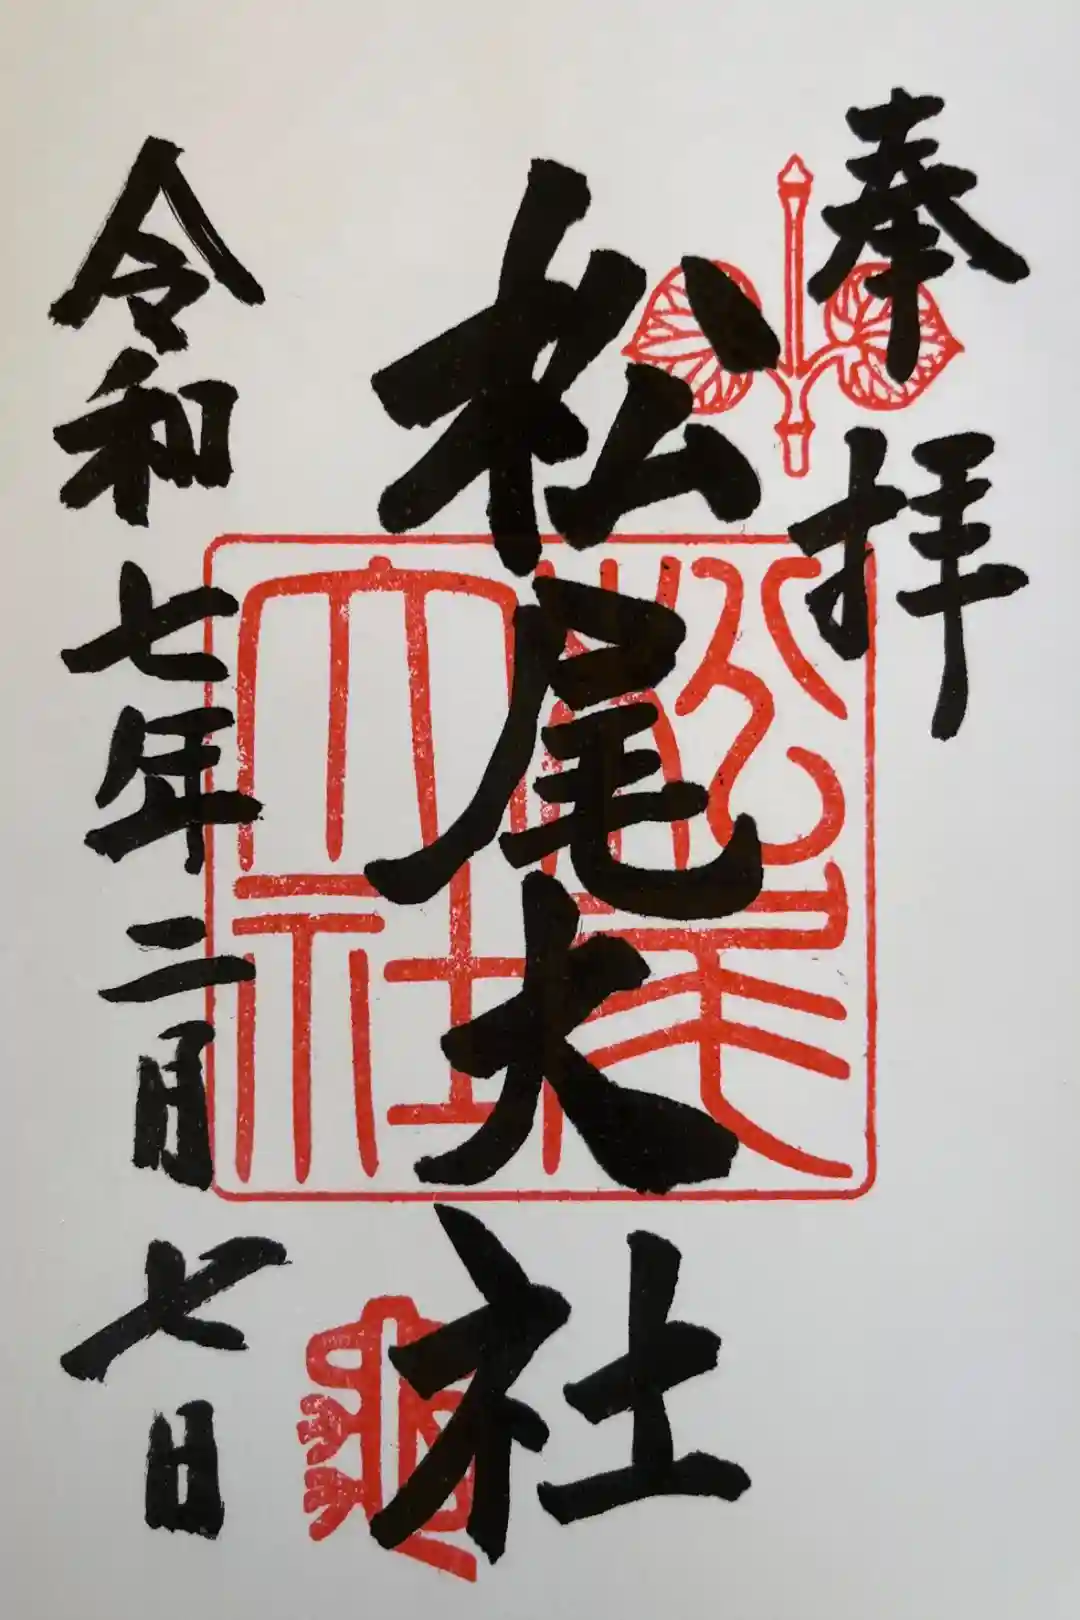 奉拝
松尾大社
松尾大社
亀
令和七年二月七日